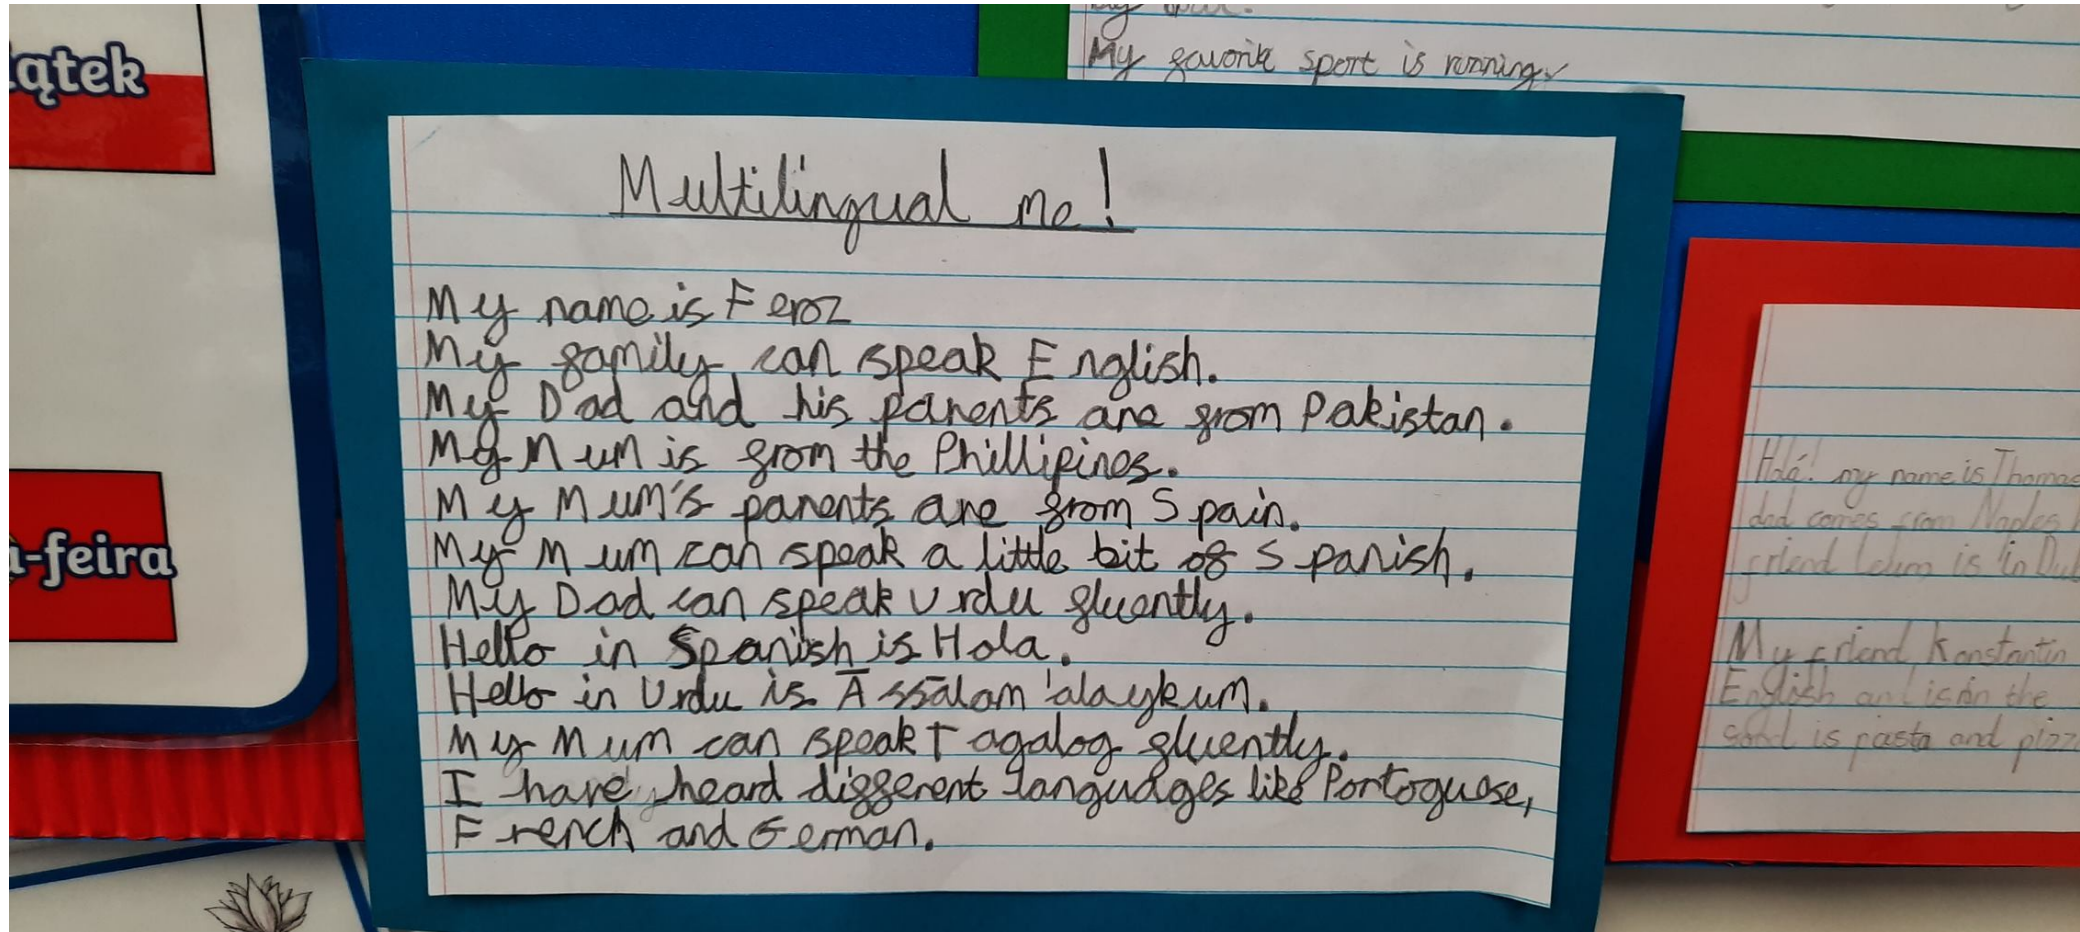 ątek
-feira
My favorite sport is running.
Multilingual me!
My name is Feroz
My family can speak English.
My Dad and his parents are from Pakistan.
My Mum is from the Phillipines.
My Mum's parents are from Spain.
My Mum can speak a little bit of Spanish.
My Dad can speak Urdu fluently.
Hello in Spanish is Hola.
Hello in Urdu is Āssālam 'alaykum.
My Mum can speak Tagalog fluently.
I have heard different languages like Portoguese,
French and German.
Hola! my name is Thomas
dad comes from Naples
friend is in
My friend Konstantin
English and is in the
food is pasta and pizz